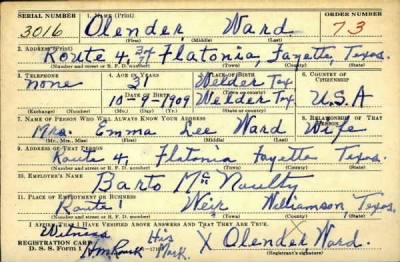 SERIAL NUMBER 1. NAME (Print) ORDER NUMBER
3016 Olender Ward 73
(First) (Middle) (Last)
2. ADDRESS (Print)
Route 4 Flatonia, Fayette, Texas.
(Number and street or R. F. D. number) (Town) (County) (State)
3. TELEPHONE 4. AGE IN YEARS 5. PLACE OF BIRTH 6. COUNTRY OF CITIZENSHIP
none 31 Welder Tex
DATE OF BIRTH
10-9-1909 Welder Tex U.S.A
(Exchange) (Number) (Mo.) (Day) (Yr.) (State or country)
7. NAME OF PERSON WHO WILL ALWAYS KNOW YOUR ADDRESS 8. RELATIONSHIP OF THAT PERSON
Mrs. Emma Lee Ward Wife
(Mr., Mrs., Miss) (First) (Middle) (Last)
9. ADDRESS OF THAT PERSON
Route 4, Flatonia Fayette Texas.
(Number and street or R. F. D. number) (Town) (County) (State)
10. EMPLOYER'S NAME
Barto
11. PLACE OF EMPLOYMENT OR BUSINESS
Route 1 Weir Williamson Texas.
(Number and street or R. F. D. number) (Town) (County) (State)
I AFFIRM THAT I HAVE VERIFIED ABOVE ANSWERS AND THAT THEY ARE TRUE.
Witness His X
REGISTRATION CARD Mark. X Olender Ward.
D. S. S. Form 1 (Registrant's signature)